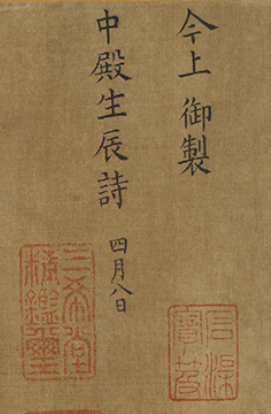 今上 御製
中殿生辰詩 四月八日
三希堂精鑑璽